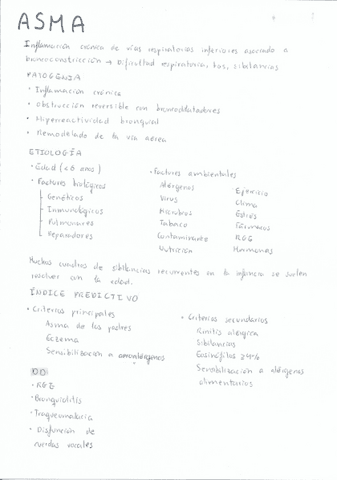 ASMA
Inflamación crónica de vías respiratorias inferiores asociado a
broncoconstricción → Dificultad respiratoria, tos, sibilancias
PATOGENIA
• Inflamación crónica
• Obstrucción reversible con broncodilatadores
• Hiperreactividad bronquial
• Remodelado de la vía aérea
ETIOLOGÍA
• Edad (<6 años)
• Factores biológicos
Genéticos
Inmunológicos
Pulmonares
Reparadores
• Factores ambientales
Alérgenos
Virus
Microbios
Tabaco
Contaminante
Nutrición
Ejercicio
Clima
Estrés
Fármacos
RGE
Hormonas
Muchos cuadros de sibilancias recurrentes en la infancia se suelen
resolver con la edad.
ÍNDICE PREDICTIVO
• Criterios principales
Asma de los padres
Eczema
Sensibilización a aeroalérgenos
• Criterios secundarios
Rinitis alérgica
Sibilancias
Eosinófilos ≥4%
Sensibilización a alérgenos
alimentarios
DD
• RGE
• Bronquiolitis
• Traqueomalacia
• Disfunción de
cuerdas vocales